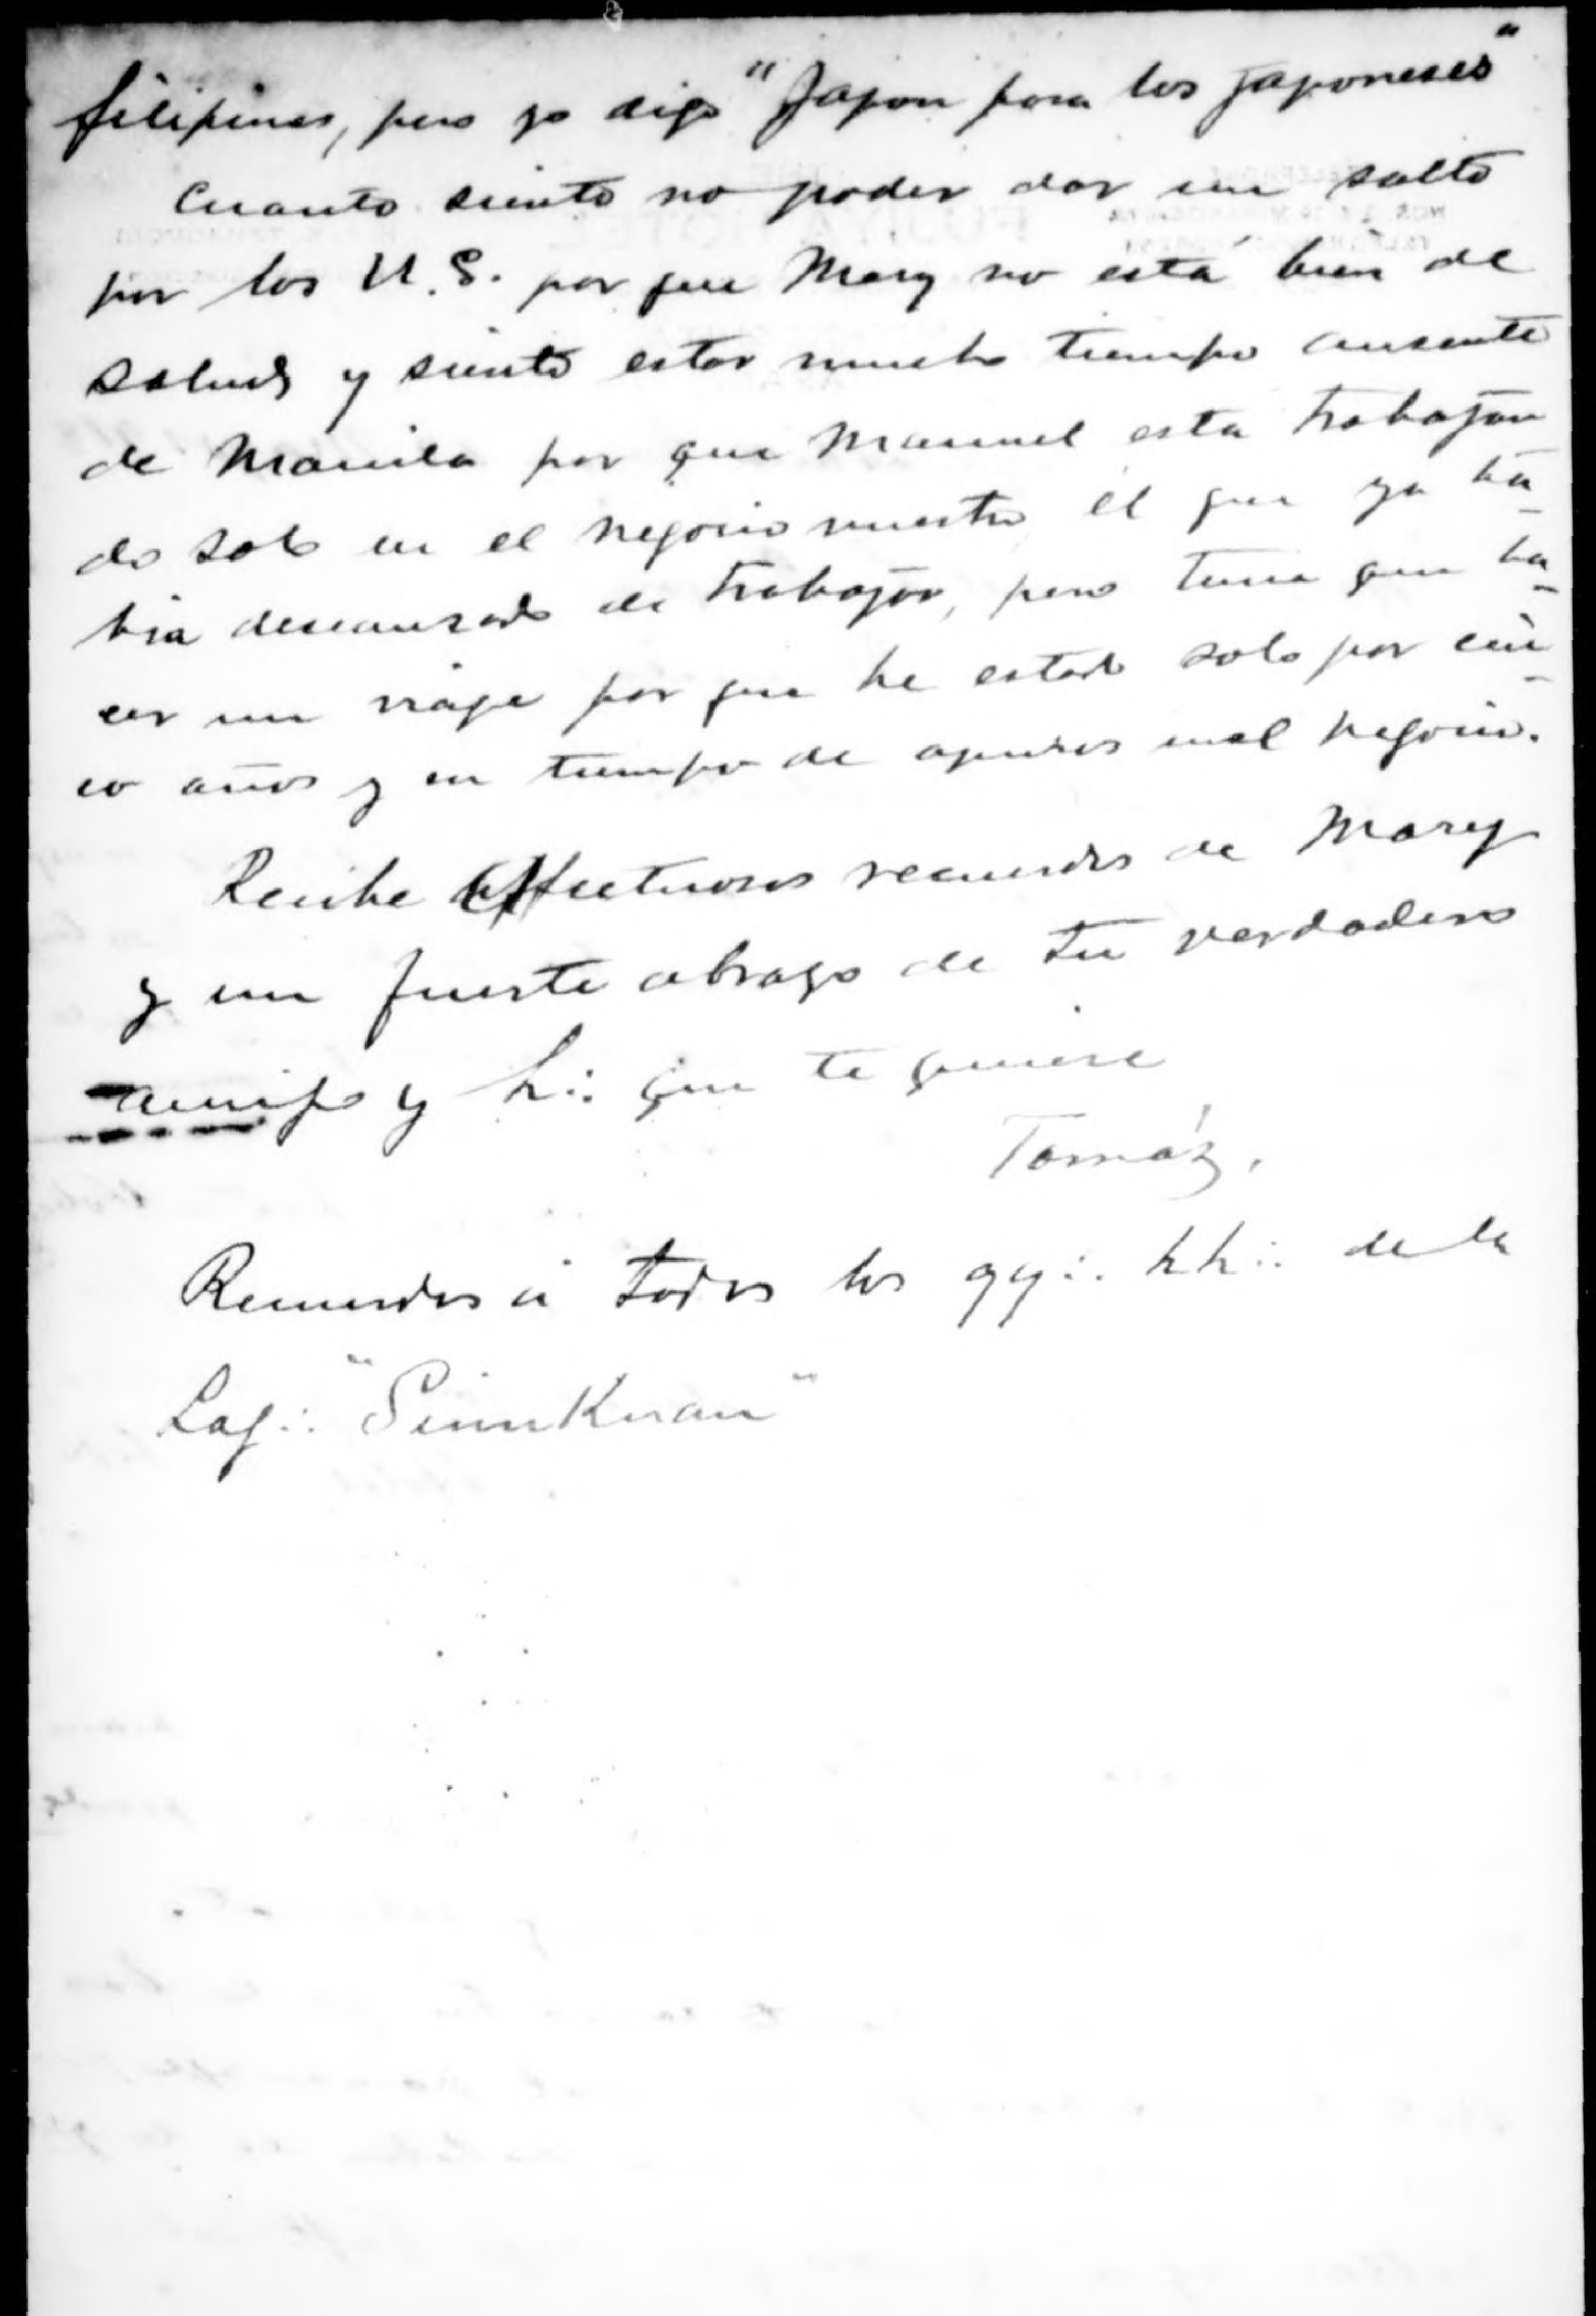 filipinas, pero yo digo "Japon para los japoneses"
Cuanto siento no poder dar un salto
por los U.S. por que Mary no está bien de
salud y siento estar mucho tiempo ausente
de Manila por que Manuel esta trabajan
do solo en el negocio nuestro, él que ya ha-
bia descansado de trabajar, pero tenia que ha-
cer un viaje por que he estado solo por cin-
co años y en tiempo de apuros en el negocio.
Recibe affectuosos recuerdos de Mary
y un fuerte abrazo de tu verdadero
amigo y h∴ que te quiere
Tomáz.
Recuerdos á todos los qq∴ hh∴ de la
Log∴ "Sinukuan"